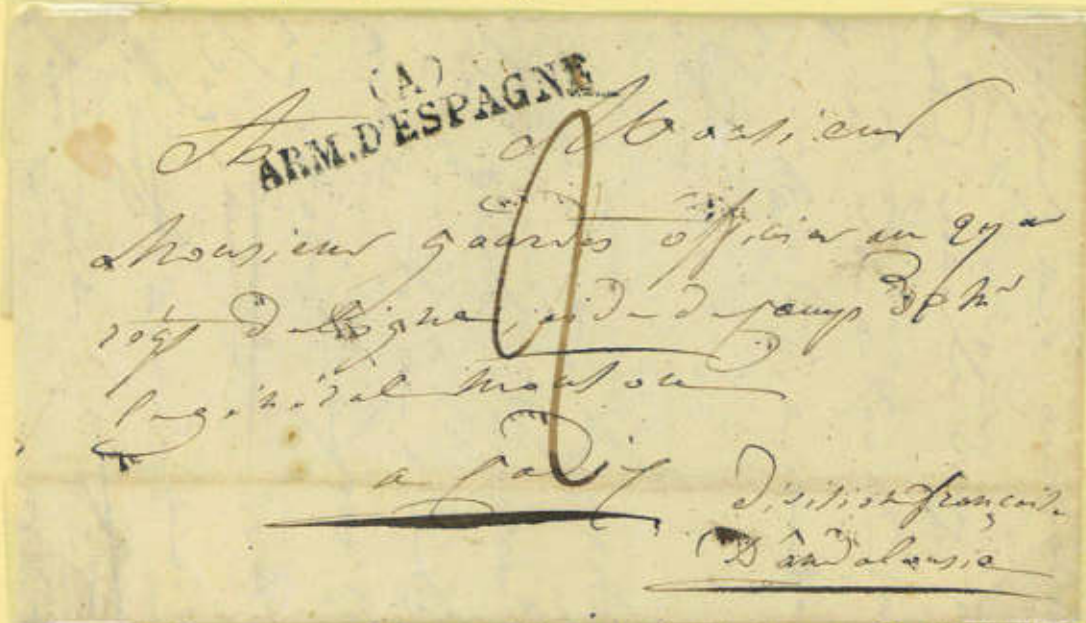 (A)
ARM. D'ESPAGNE
A Monsieur
Monsieur officier au
régt De Ligne, aide de camp De Mr
le général
a Cadiz
Division françoise
D'andalousie